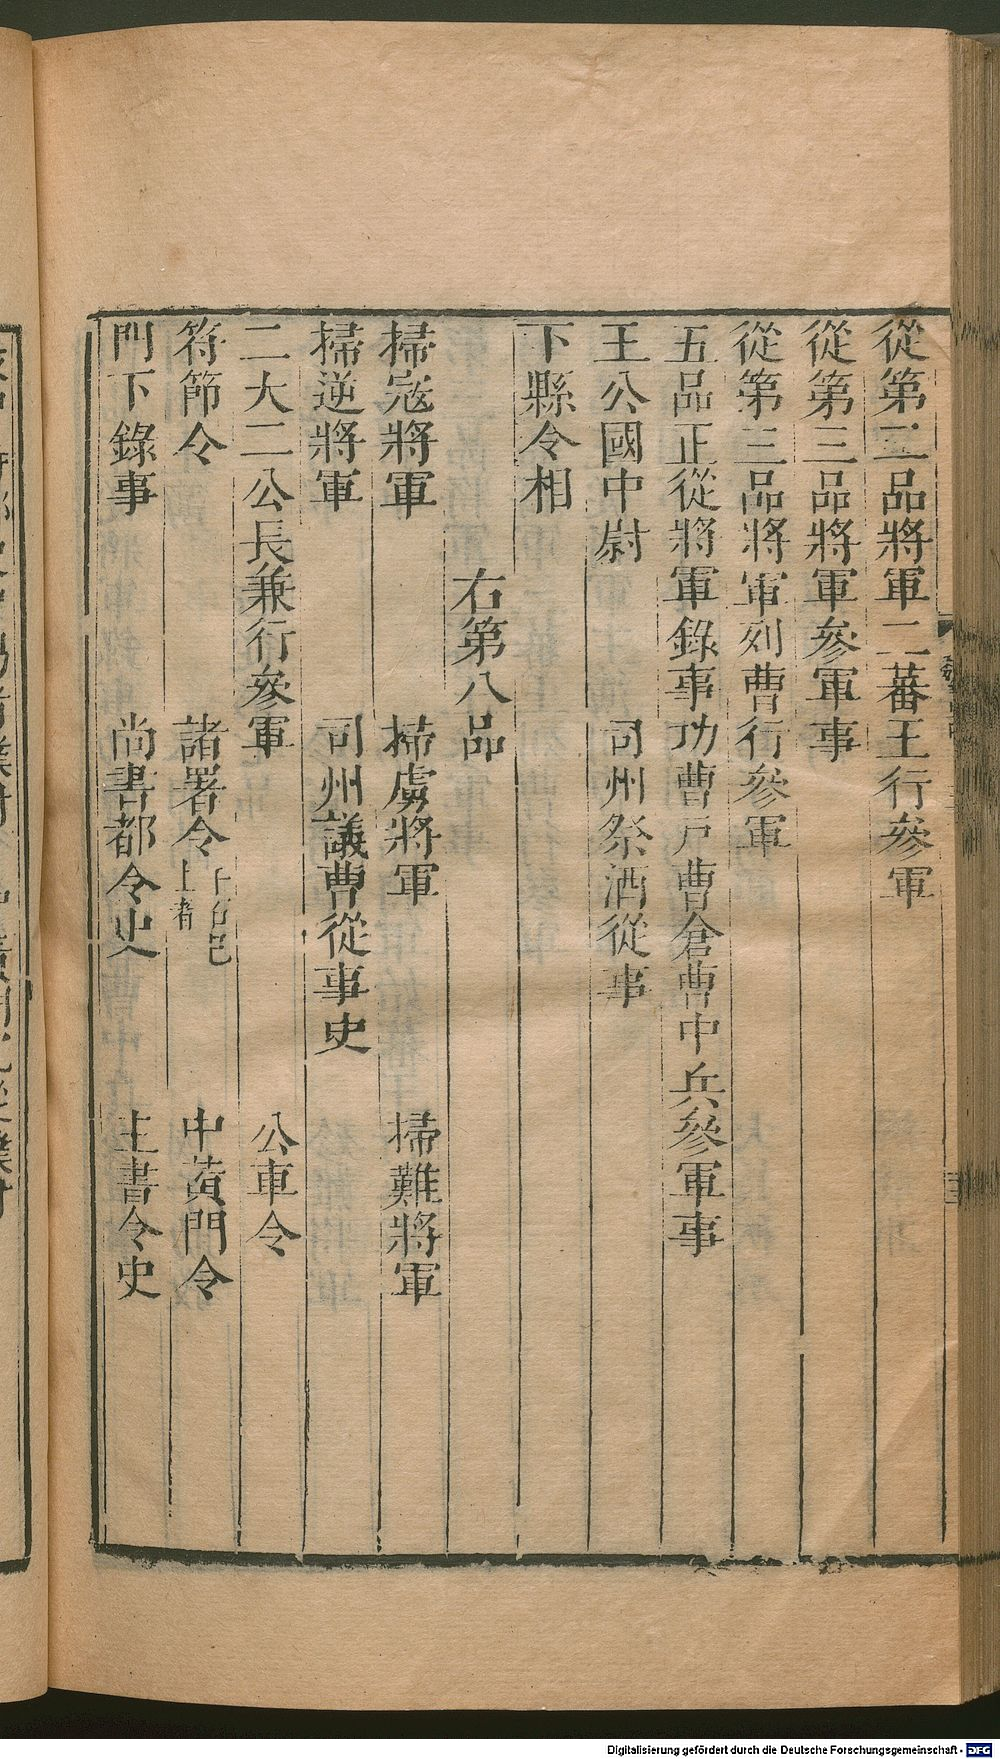 從第二品將軍二蕃王行參軍
從第三品將軍參軍事
從第三品將軍列曹行參軍
五品正從將軍錄事功曹戸曹倉曹中兵參軍事
王公國中尉 司州祭酒從事
下縣令相
右第八品
掃寇將軍 掃虜將軍 掃難將軍
掃逆將軍 司州議曹從事史
二大二公長兼行參軍 公車令
符節令 諸署令 上者 中黃門令
門下錄事 尚書都令史 主書令史
Digitalisierung gefördert durch die Deutsche Forschungsgemeinschaft - DFG